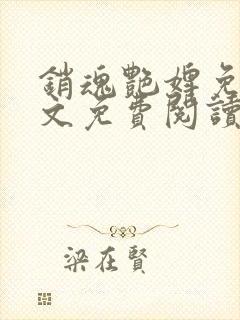 銷魂艷婢免
文免費閱讀
梁在賢